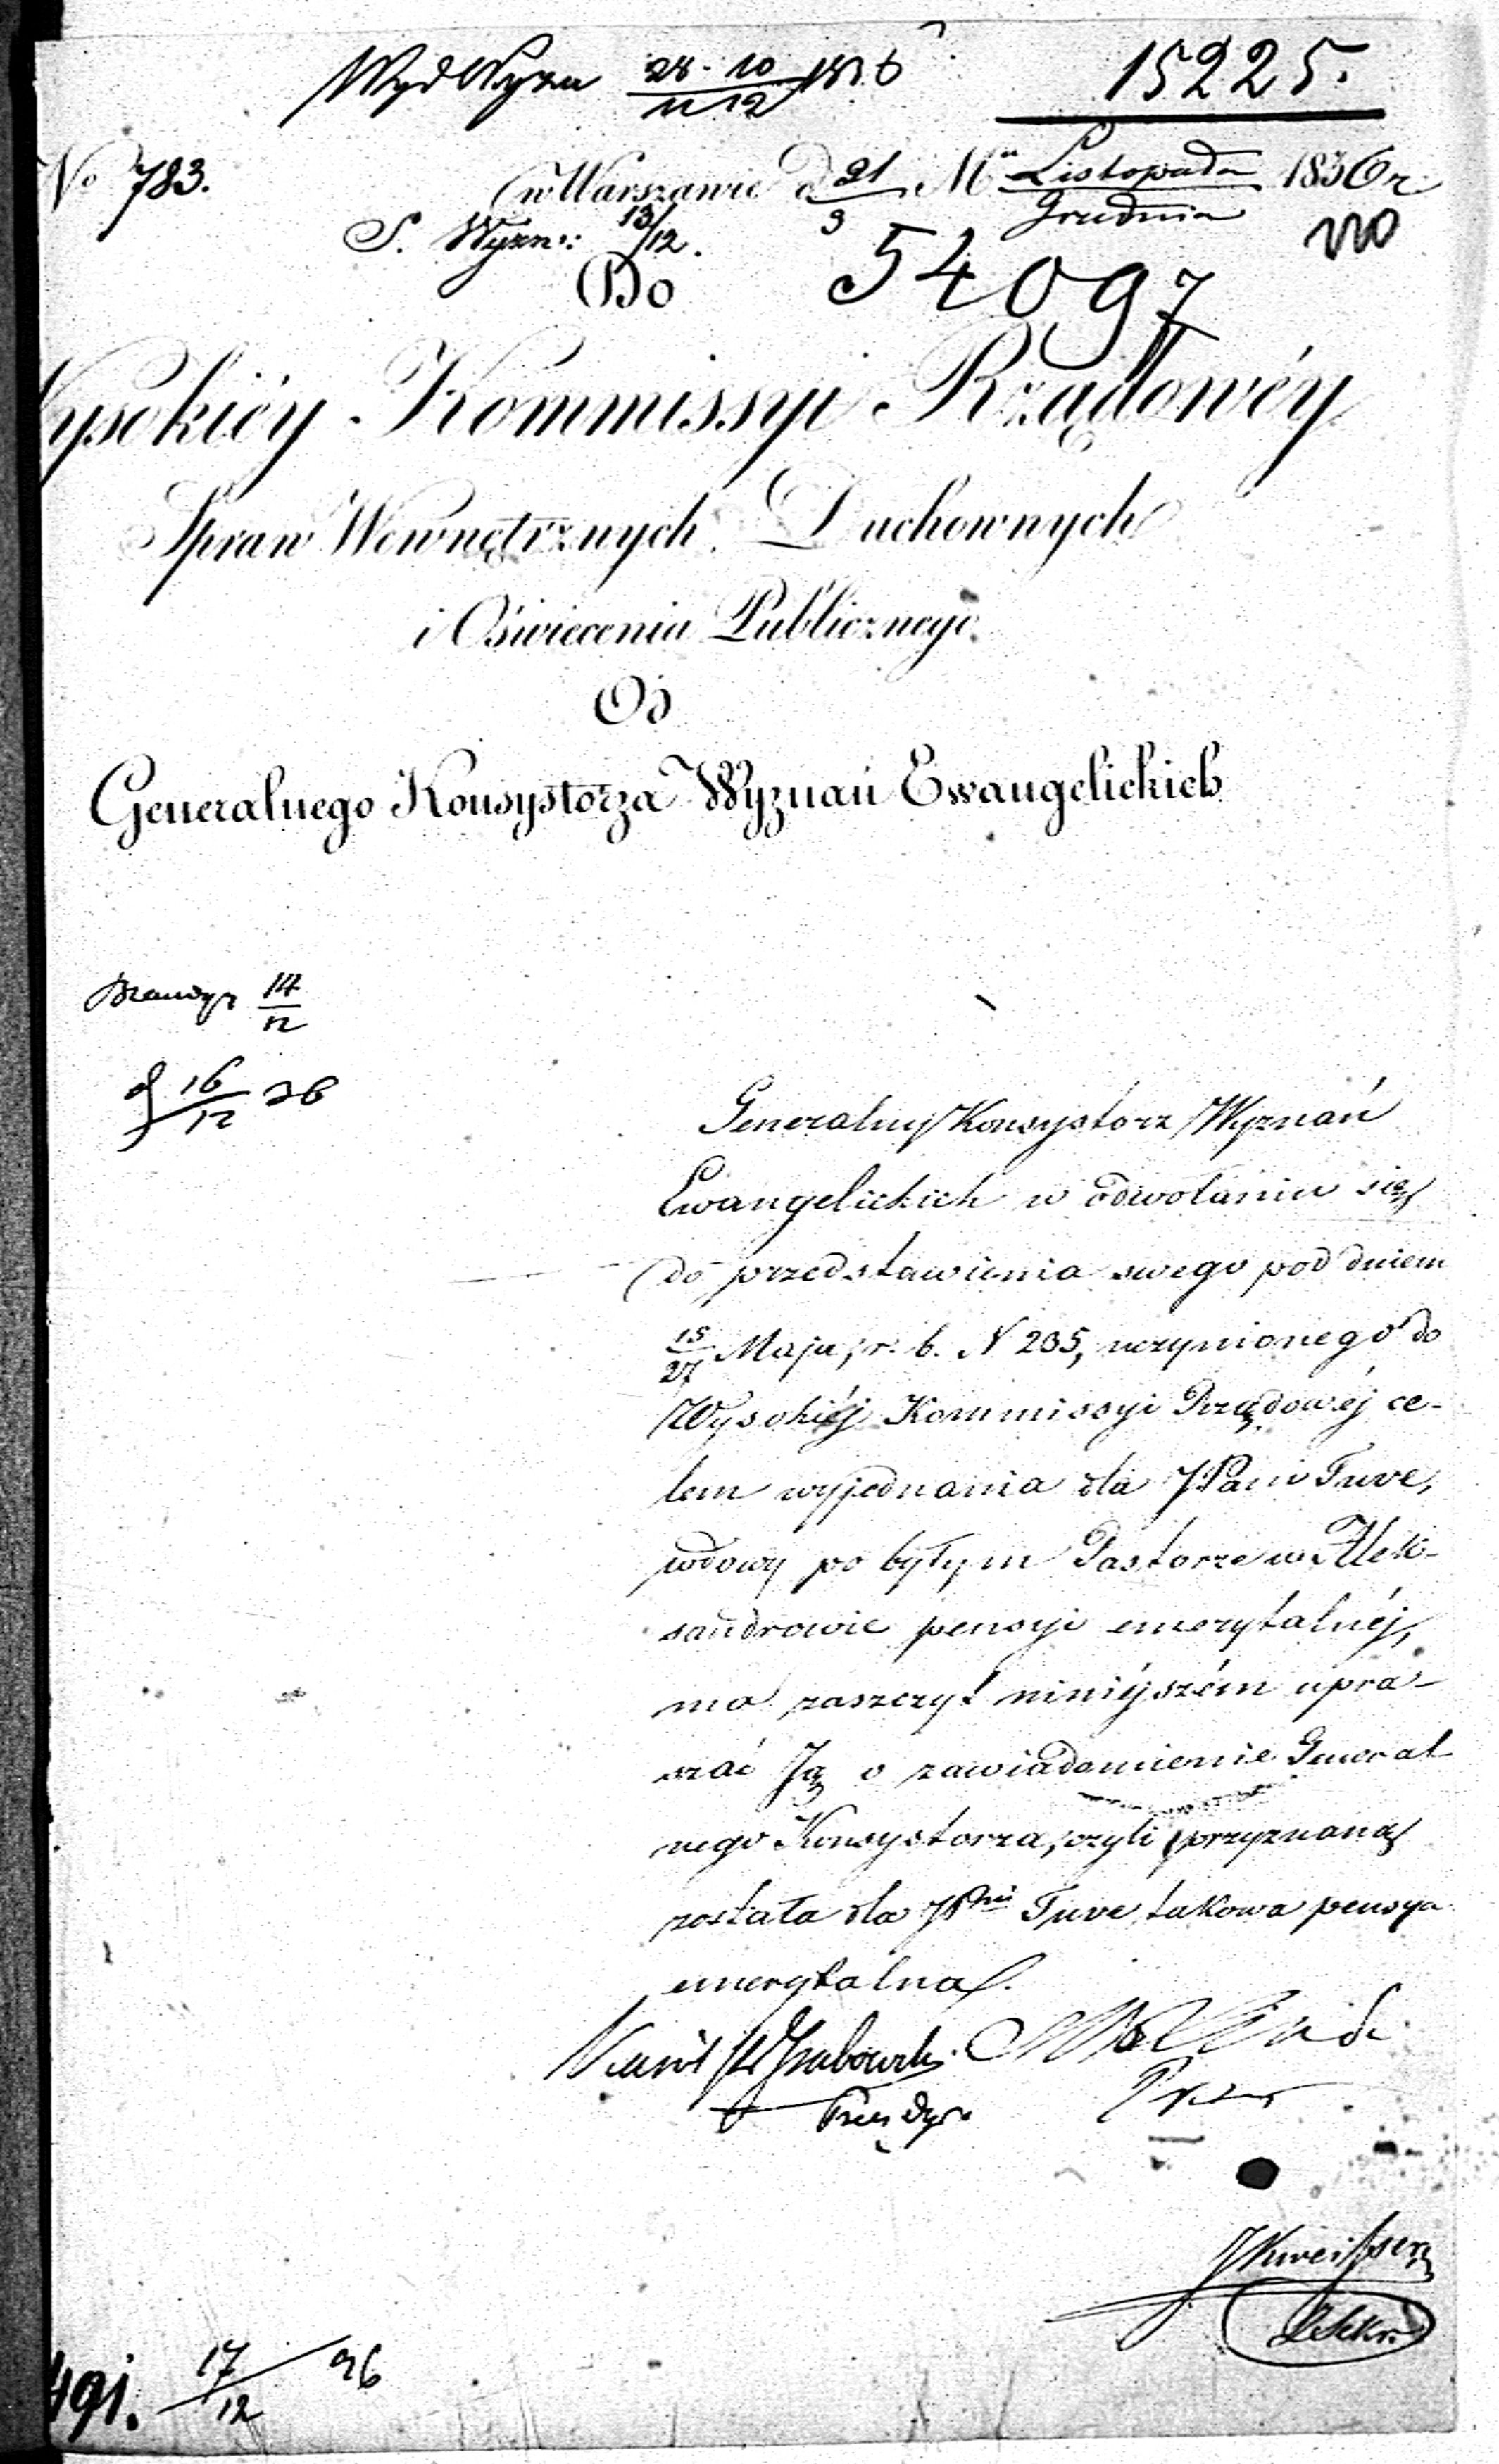 15225.
No 783.
w Warszawie d 21/3 M Listopada/Grudnia 1836 r.
S. Wyzn: 13/12.
Do 54097
Wysokiéy Kommissyi Rządowéy
Spraw Wewnętrznych Duchownych
i Oświecenia Publicznego
Od
Generalnego Konsystorza Wyznań Ewangelickich
14/12
16/12 36
Generalny Konsystorz Wyznań
Ewangelickich w odwołaniu się
do przedstawienia swego pod dniem
15/27 Maja, r. b. N 235, uczynionego do
Wysokiéj Kommissyi Rządowéj ce-
lem wyjednania dla JPani Tuve,
wdowy po byłym Pastorze w Alek-
sandrowie pensyi emerytalnéj,
ma zaszczyt niniéjszém upra-
szać Ją o zawiadomienie General
nego Konsystorza, czyli przyznaną
została dla JPni Tuve takowa pensya
emerytalna.
17/12 36